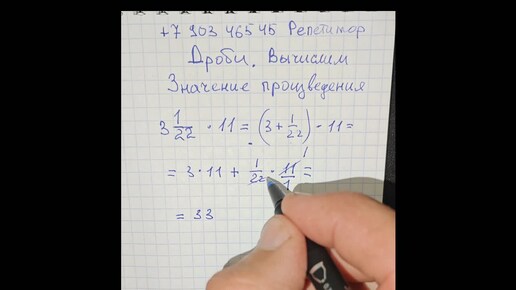 +7 903 465 45 Репетитор
Дроби. Вычислим
Значение произведения
3 1/22 · 11 = (3 + 1/22) · 11 =
= 3 · 11 + 1/22 · 11/1 = 1
= 33